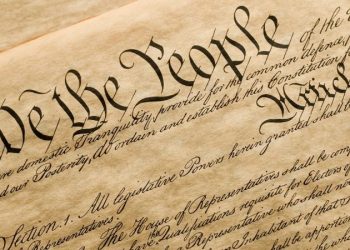 We the People of the
domestic Tranquility, provide for the common defence,
our Posterity, do ordain and establish this Constitution
Articl
Section. 1. All legislative Powers herein granted shall
Representatives.
The House of Representatives shall be
Qualifications requisite for Electors of
Representative who shall
Inhabitant of that
shall be